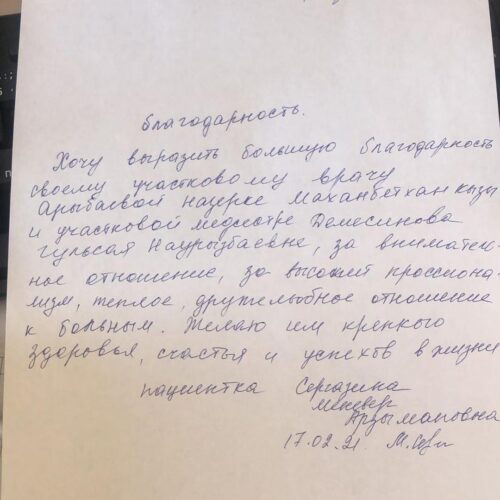 благодарность.
Хочу выразить большую благодарность
своему участковому врачу
Арыбаевой Назерке Маханбетхан кызы
и участковой медсестре Демесинова
Гульсая Наурызбаевне, за вниматель-
ное отношение, за высокий
лизм, теплое, дружелюбное отношение
к больным. Желаю им крепкого
здоровья, счастья и успехов в жизни
пациентка Сергазина
Менсвер
Арзымановна
17.02.21. М.